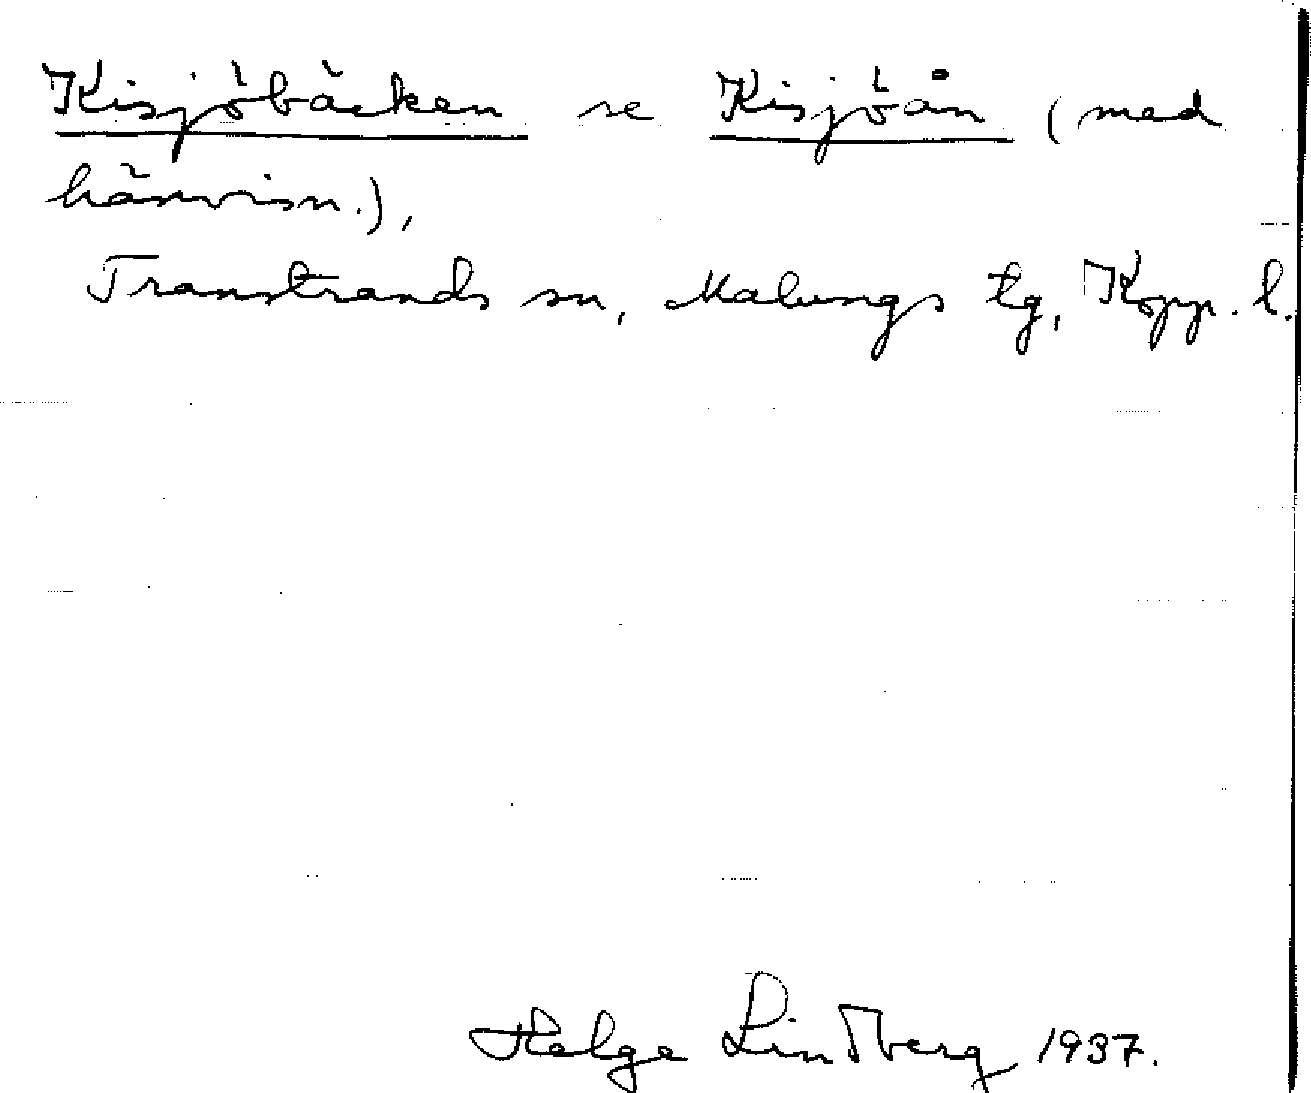 Kisjöbäcken se Kisjöån (med
hänvisn.),
Transtrands sn, Malungs tg, Kopp. l.
Helge Lindberg 1937.